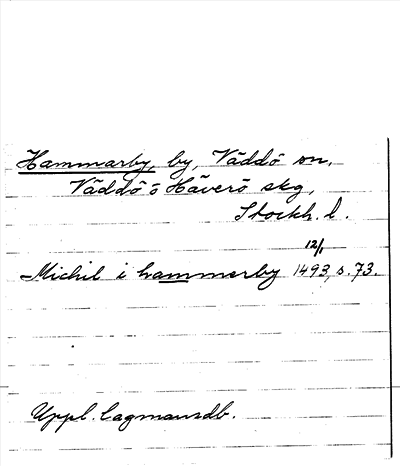 Hammarby, by, Väddö sn,
Väddö o Häverö skg,
Stockh. l.
12/1
Michil i hammerby 1493, s. 73.
Uppl. Lagmansdb.